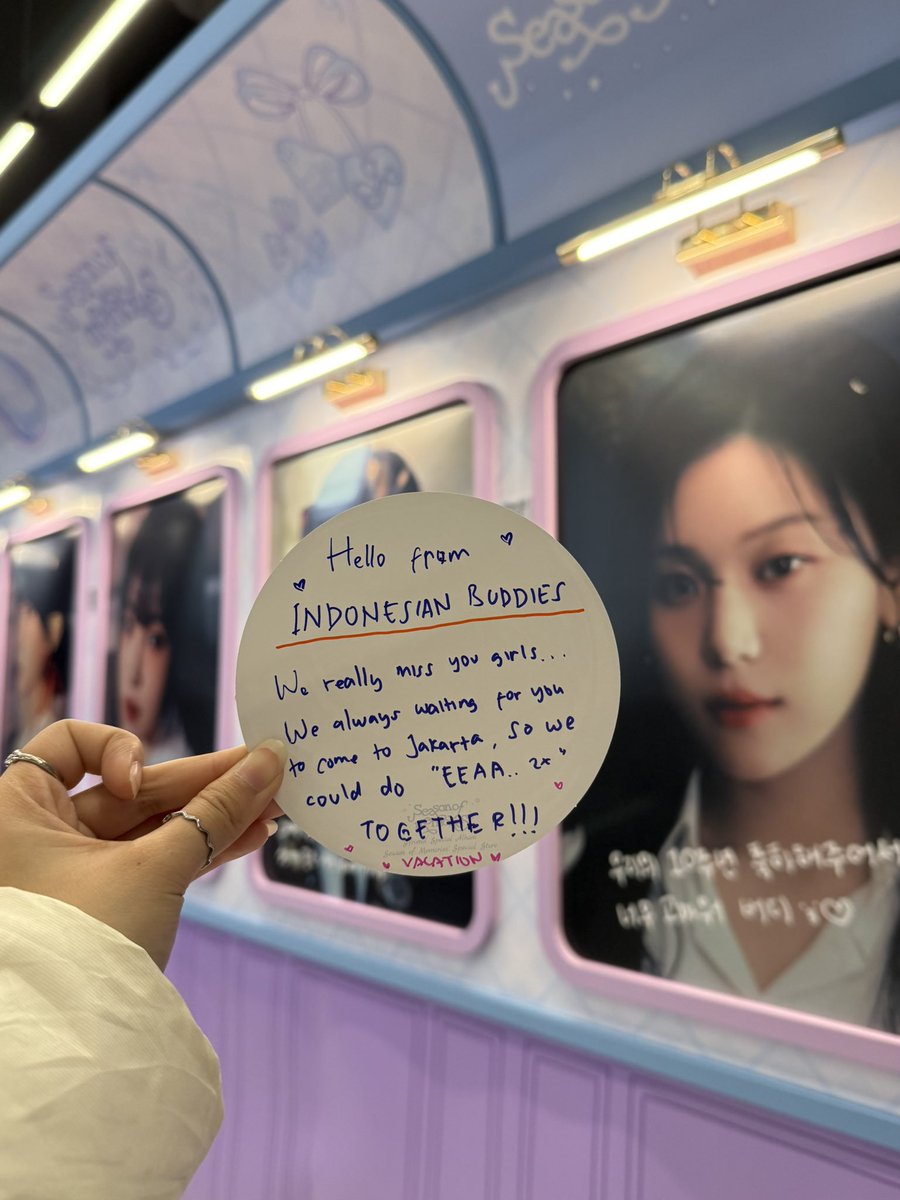 Hello from
INDONESIAN BUDDIES
We really miss you girls...
We always waiting for you
to come to Jakarta, so we
could do "EEAA.. 2x"
TOGETHER!!!
Season of
Season of Memories Special Store
VACATION
우리의 10주년 축하해주어서
너무 고마워 버디 ♡